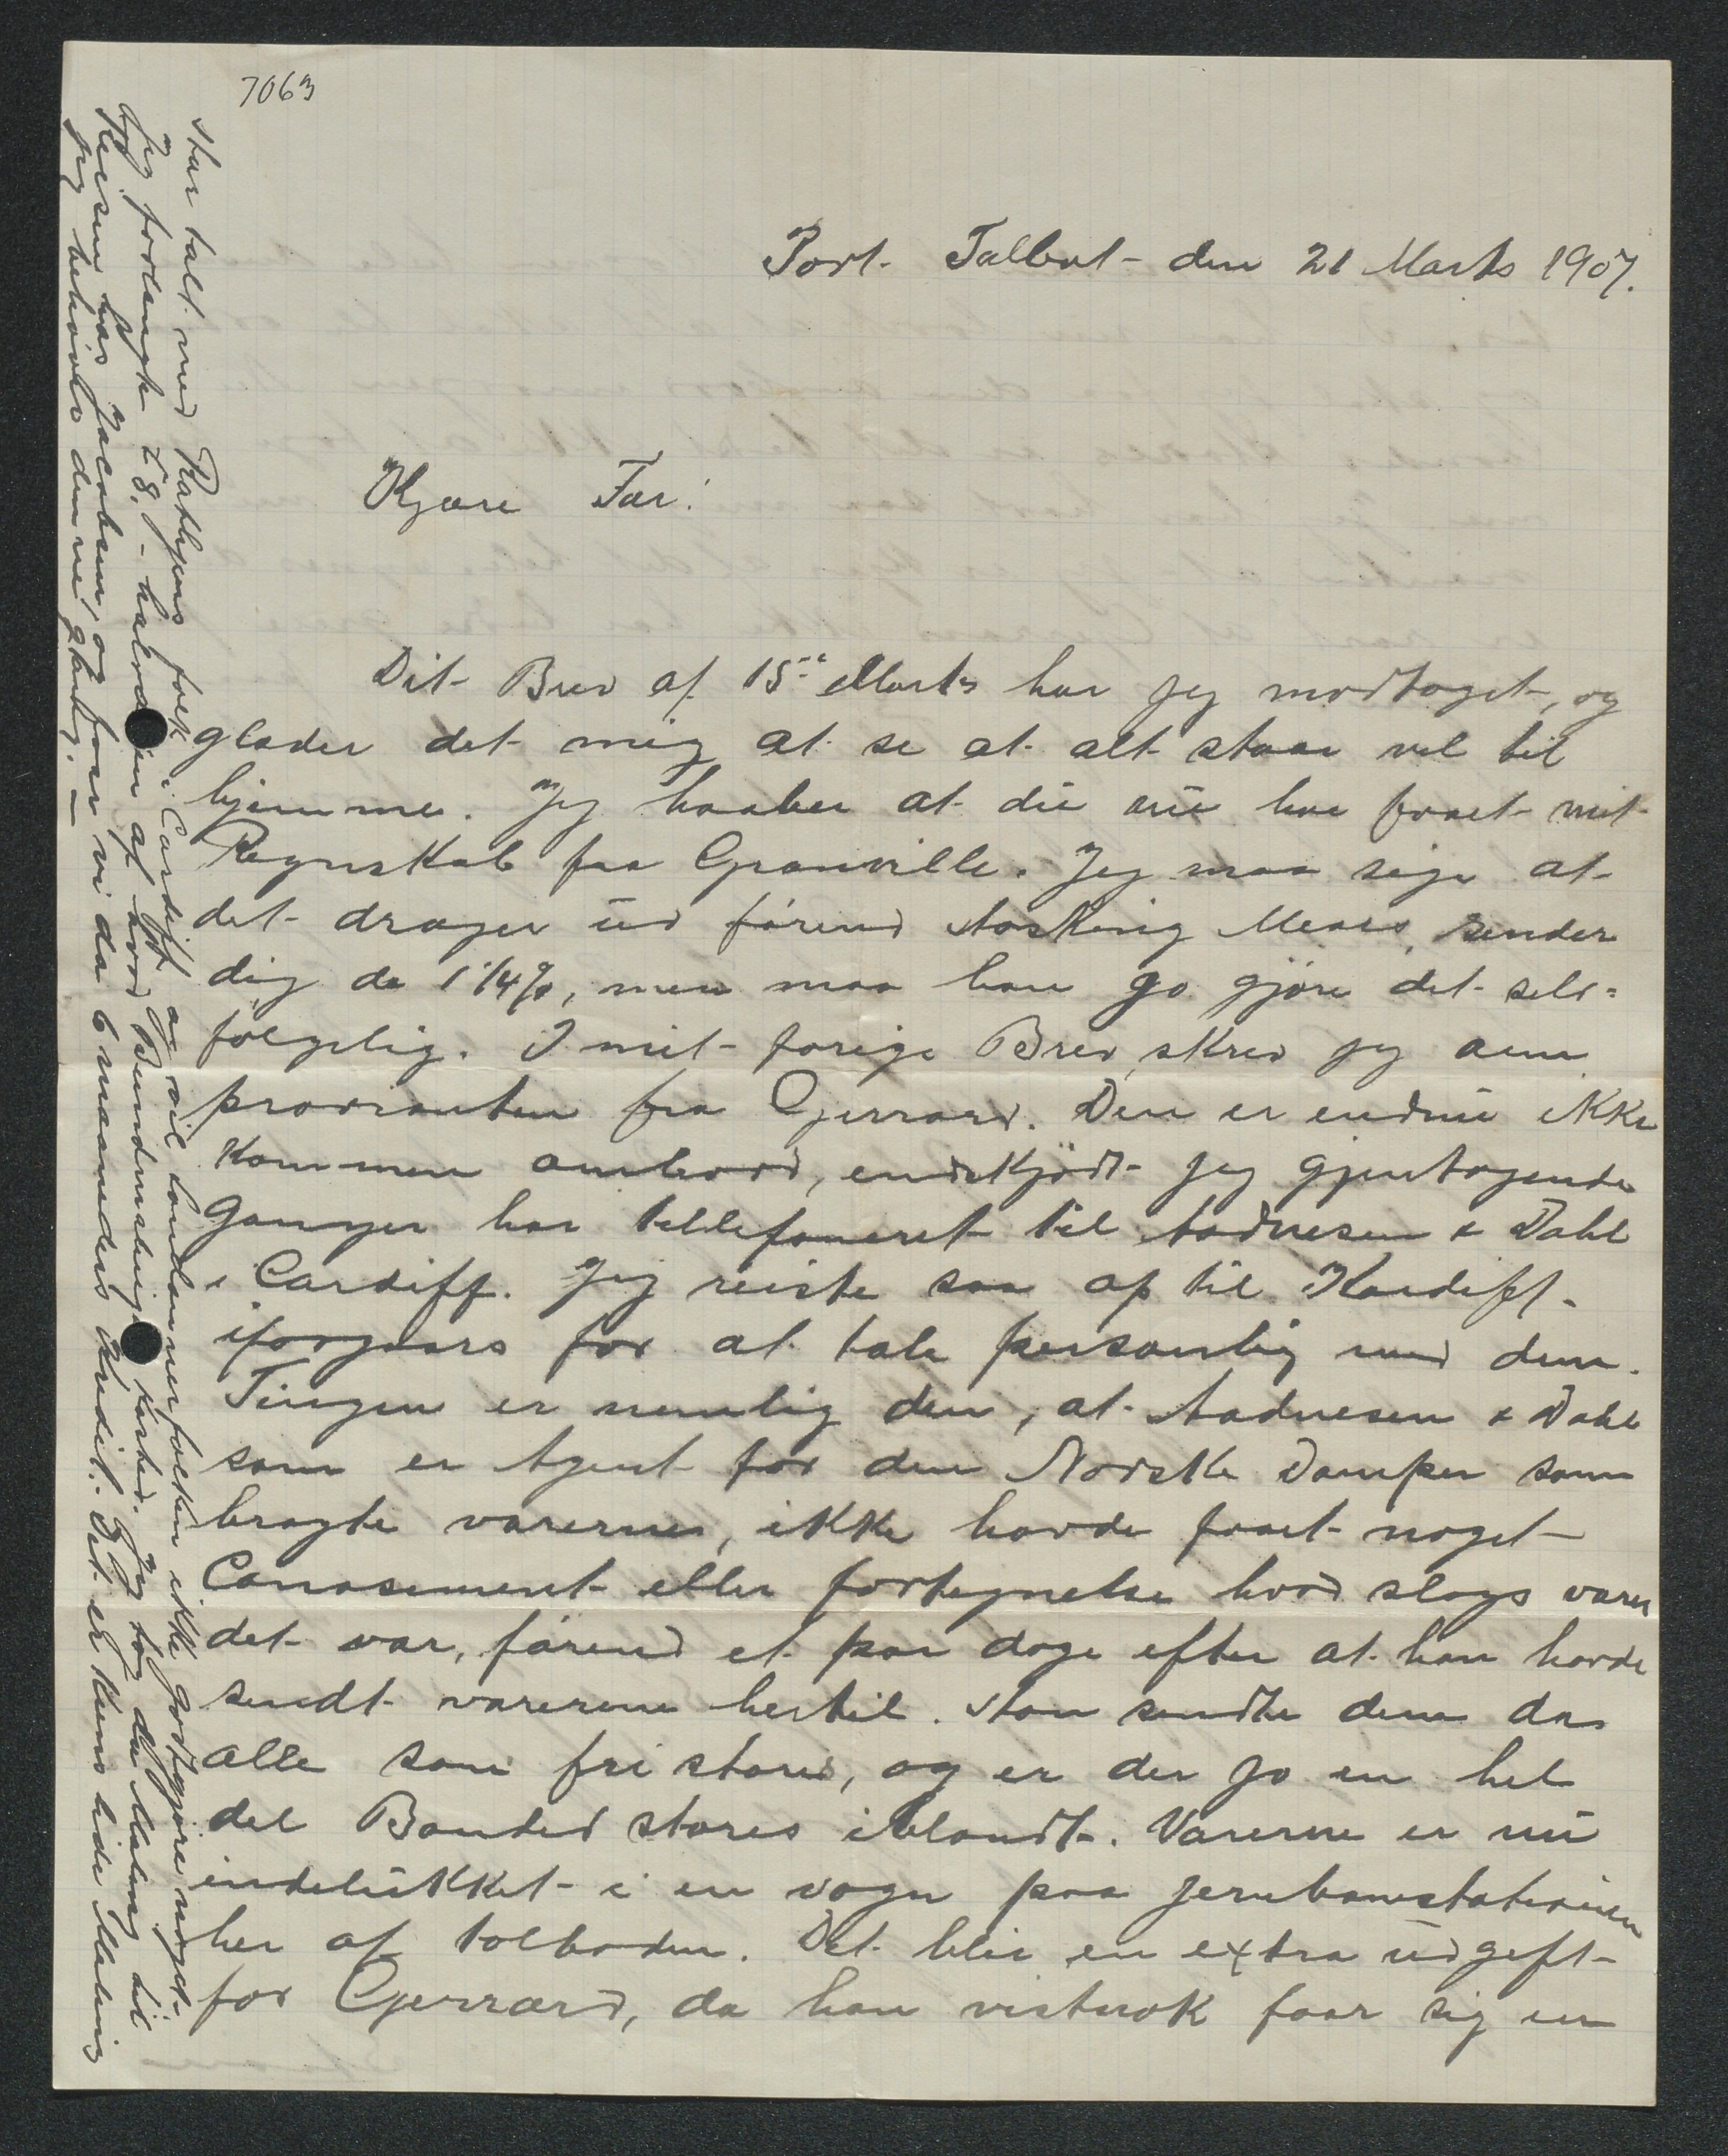 7063
Port Talbot den 21 Marts 1907.
Kjære Far!
Dit Brev af 15de Marts har jeg modtaget, og
glæder det mig at se at alt staar vel til
hjemme. Jeg haaber at du nu har faaet mit
Regnskab fra Granville. Jeg maa sige at
det drager ud førend Hosking Mears, sender
dig de 1 1/4 %, men maa han jo gjøre det selv=
følgelig. I mit forige Brev, skrev jeg om
provianten fra Gjerrard. Den er endnu ikke
kommen ombord, endskjødt jeg gjentagende
Ganger har tellefoneret til Aadnesen & Dahl
i Cardiff. Jeg reiste saa op til Kardiff
iforgaars for at tale personlig med dem.
Tingen er nemlig den, at Aadnesen & Dahl
som er Agent for den Norske Damper som
bragte varerne, ikke havde faaet noget
Conosement eller fortegnelse hvad slags varer
det var, førend et par dage efter at han havde
sendt varerene hertil. Han sendte dem da
alle som fri stores, og er der jo en hel
del Bonded stores iblandt. Varerne er nu
indelukket i en vogn paa jernbanestationen
her af tolboden. Det blir en extra udgift
for Gjerrard, da han vistnok faar sig en
Har talt med Rathjens folk i Cardiff og vil londonnerfolken ikke godtgjøre noget.
Jeg forlangte £8,- halvdelen af hvad Bundmalingen kosted. Jeg tog da Maling til
Reisen hos Jacobsen, og faar vi da 6 maaneders Kredit. Det er kuns lide Maling
jeg behøvte denne gang. —